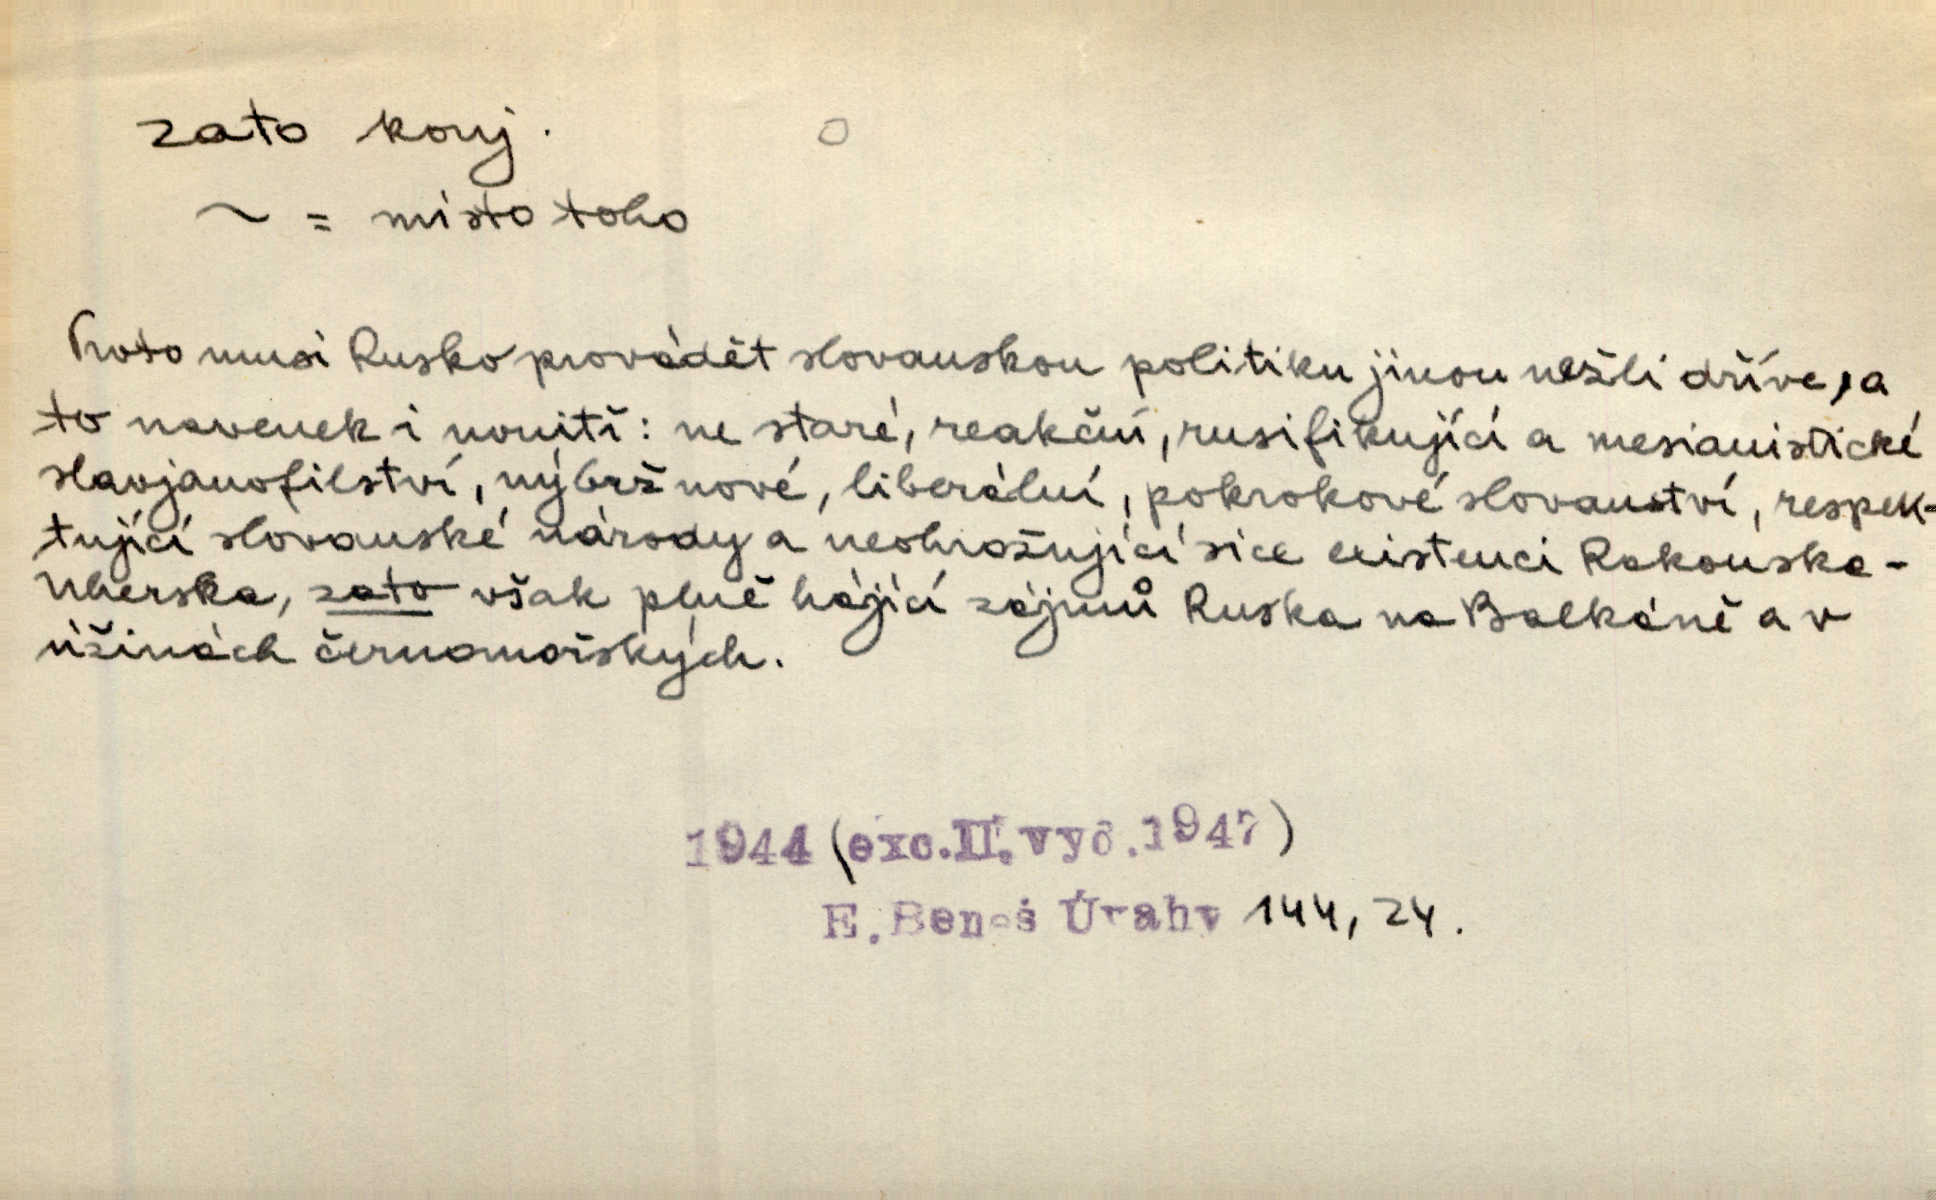 zato konj.
~ = místo toho
Proto musí Rusko provádět slovanskou politiku jinou nežli dříve, a
to navenek i uvnitř: ne staré, reakční, rusifikující a mesianistické
slavjanofilství, nýbrž nové, liberální, pokrokové slovanství, respek-
tující slovanské národy a neohrožující sice existenci Rakouska-
Uherska, zato však plně hájící zájmů Ruska na Balkáně a v
úžinách černomořských.
1944 (exc. II. vyd. 1947)
E. Beneš Úvahy 144, 24.